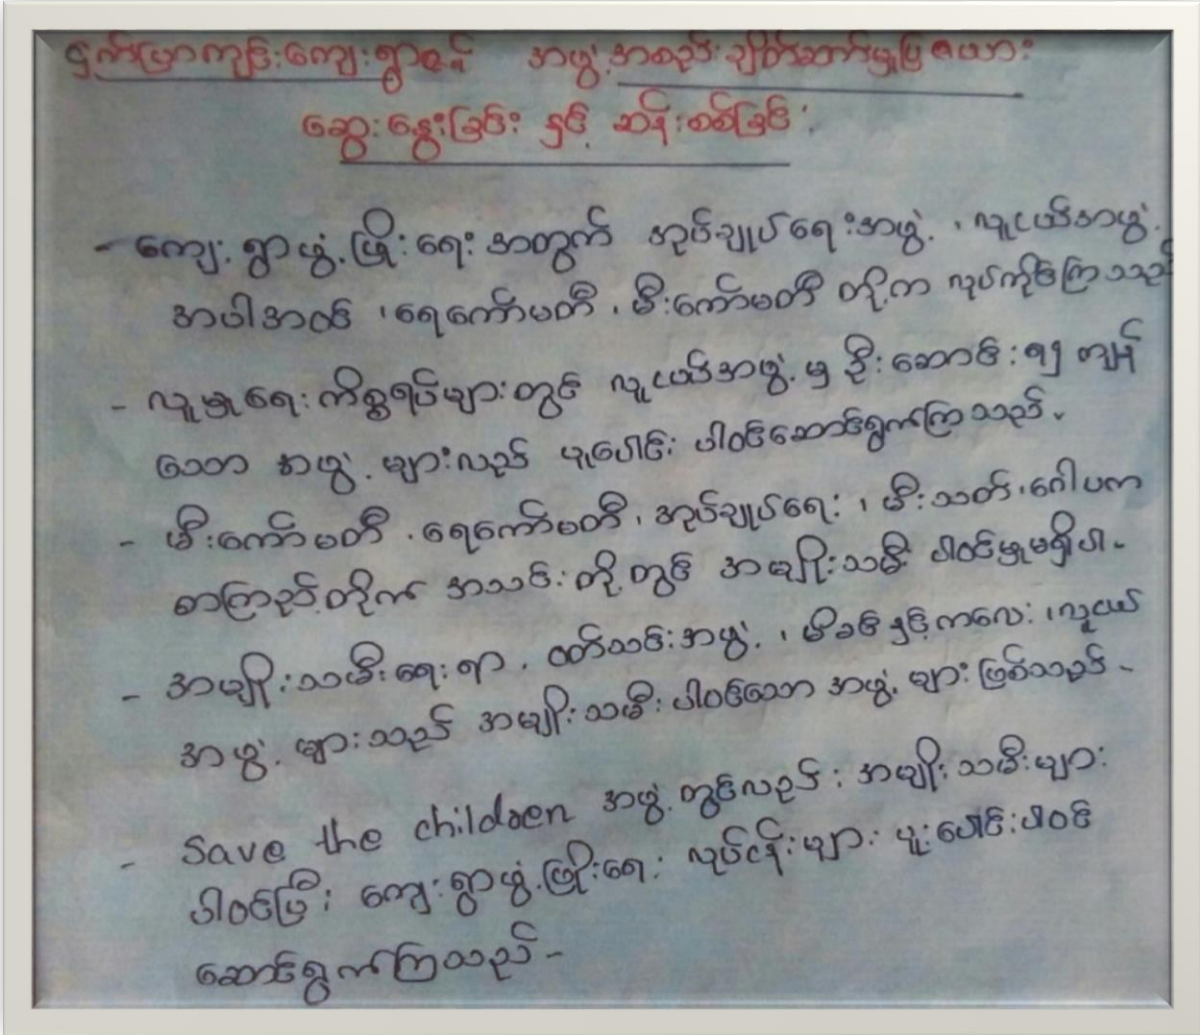 ငှက်ပြောကျင်းကျေးရွာ၏ အဖွဲ့အစည်းချိတ်ဆက်မှုပြဇယား
ဆွေးနွေးခြင်း နှင့် ဆန်းစစ်ခြင်း
- ကျေးရွာဖွံ့ဖြိုးရေးအတွက် အုပ်ချုပ်ရေးအဖွဲ့၊ လူငယ်အဖွဲ့
အပါအဝင်၊ ရေကော်မတီ၊ မီးကော်မတီ တို့က လုပ်ကိုင်ကြသည်
- လူမှုရေးကိစ္စရပ်များတွင် လူငယ်အဖွဲ့မှ ဦးဆောင်၍ ကျန်
သော အဖွဲ့များလည်း ပူးပေါင်း ပါဝင်ဆောင်ရွက်ကြသည်။
- မီးကော်မတီ၊ ရေကော်မတီ၊ အုပ်ချုပ်ရေး၊ မီးသတ်၊ ဂေါပက
စာကြည့်တိုက် အသင်းတို့တွင် အမျိုးသမီး ပါဝင်မှုမရှိပါ။
- အမျိုးသမီးရေးရာ၊ ဝတ်သင်းအဖွဲ့၊ မိခင်နှင့်ကလေး၊ လူငယ်
အဖွဲ့များသည် အမျိုးသမီးပါဝင်သော အဖွဲ့များဖြစ်သည်။
- Save the children အဖွဲ့တွင်လည်း အမျိုးသမီးများ
ပါဝင်ပြီး ကျေးရွာဖွံ့ဖြိုးရေး လုပ်ငန်းများ ပူးပေါင်းပါဝင်
ဆောင်ရွက်ကြသည်။